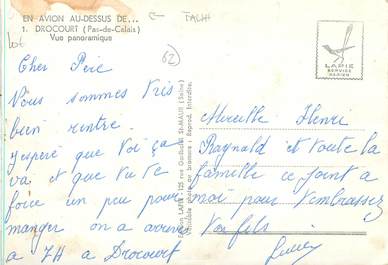 EN AVION AU-DESSUS DE...
1. DROCOURT (Pas-de-Calais)
Vue panoramique
62
Cher Père
Vous sommes très
bien rentre.
j'espère que toi ça
va et que tu te
foire un peu pour
manger on a arrivé
a 7H a Drocourt
LAPIE
SERVICE
AERIEN
Edition LAPIE 125 rue Garibaldi St-MAUR (Seine)
Véritable photo au bromure : Reprod. Interdite.
Mireille Henri
Raynald et toute la
famille ce joint a
moi pour t'embrassez
Ton fils